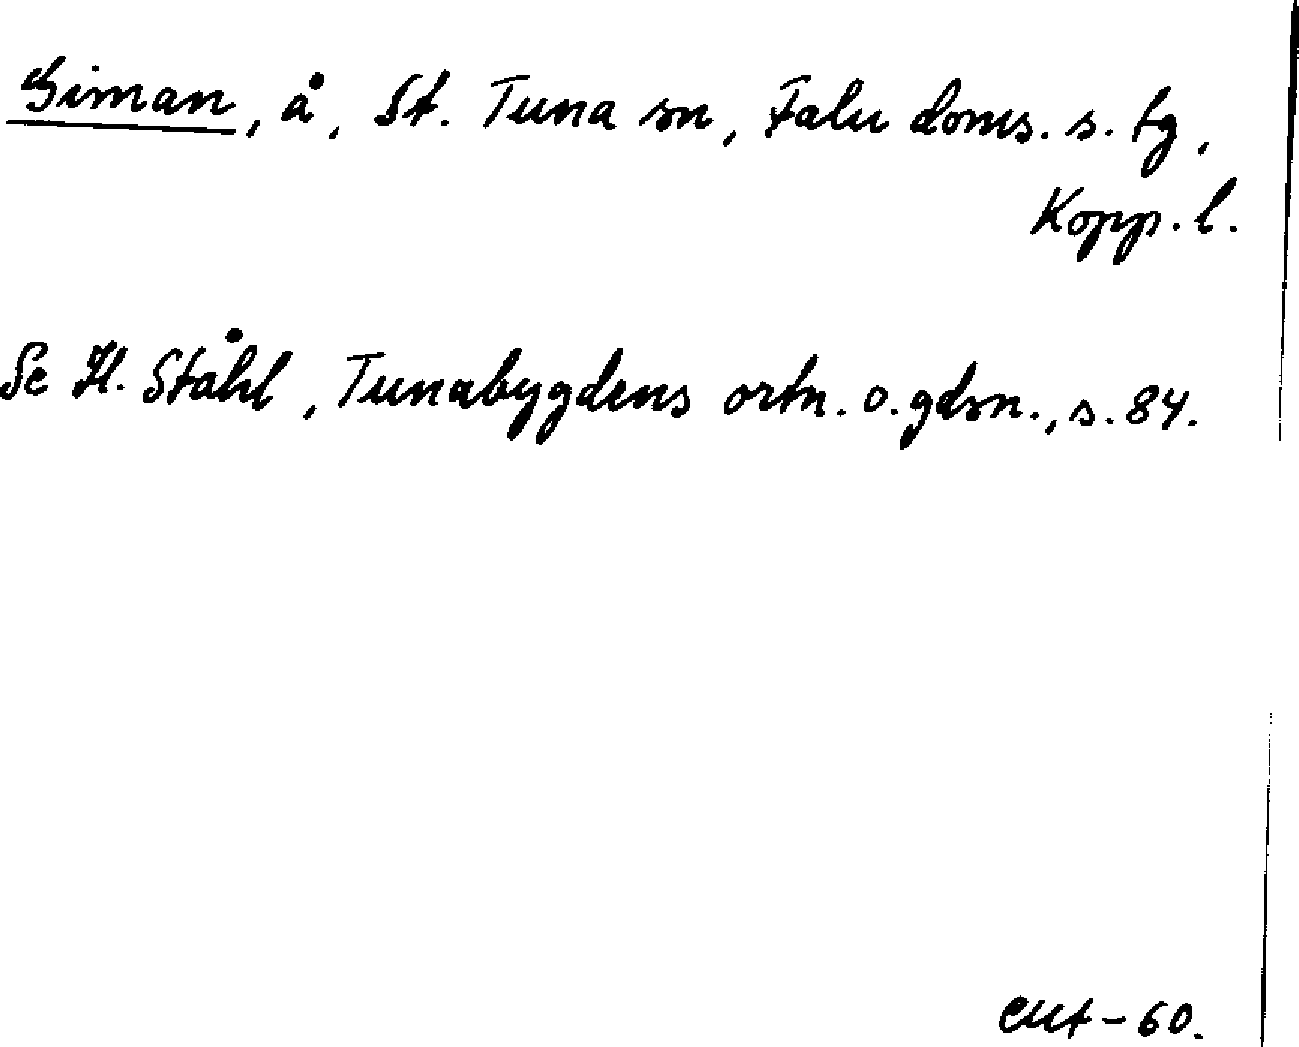 Giman, å, St. Tuna sn, Falu doms. s. tg,
Kopp. l.
Se H. Ståhl, Tunabygdens ortn. o. gdsn., s. 84.
-60.